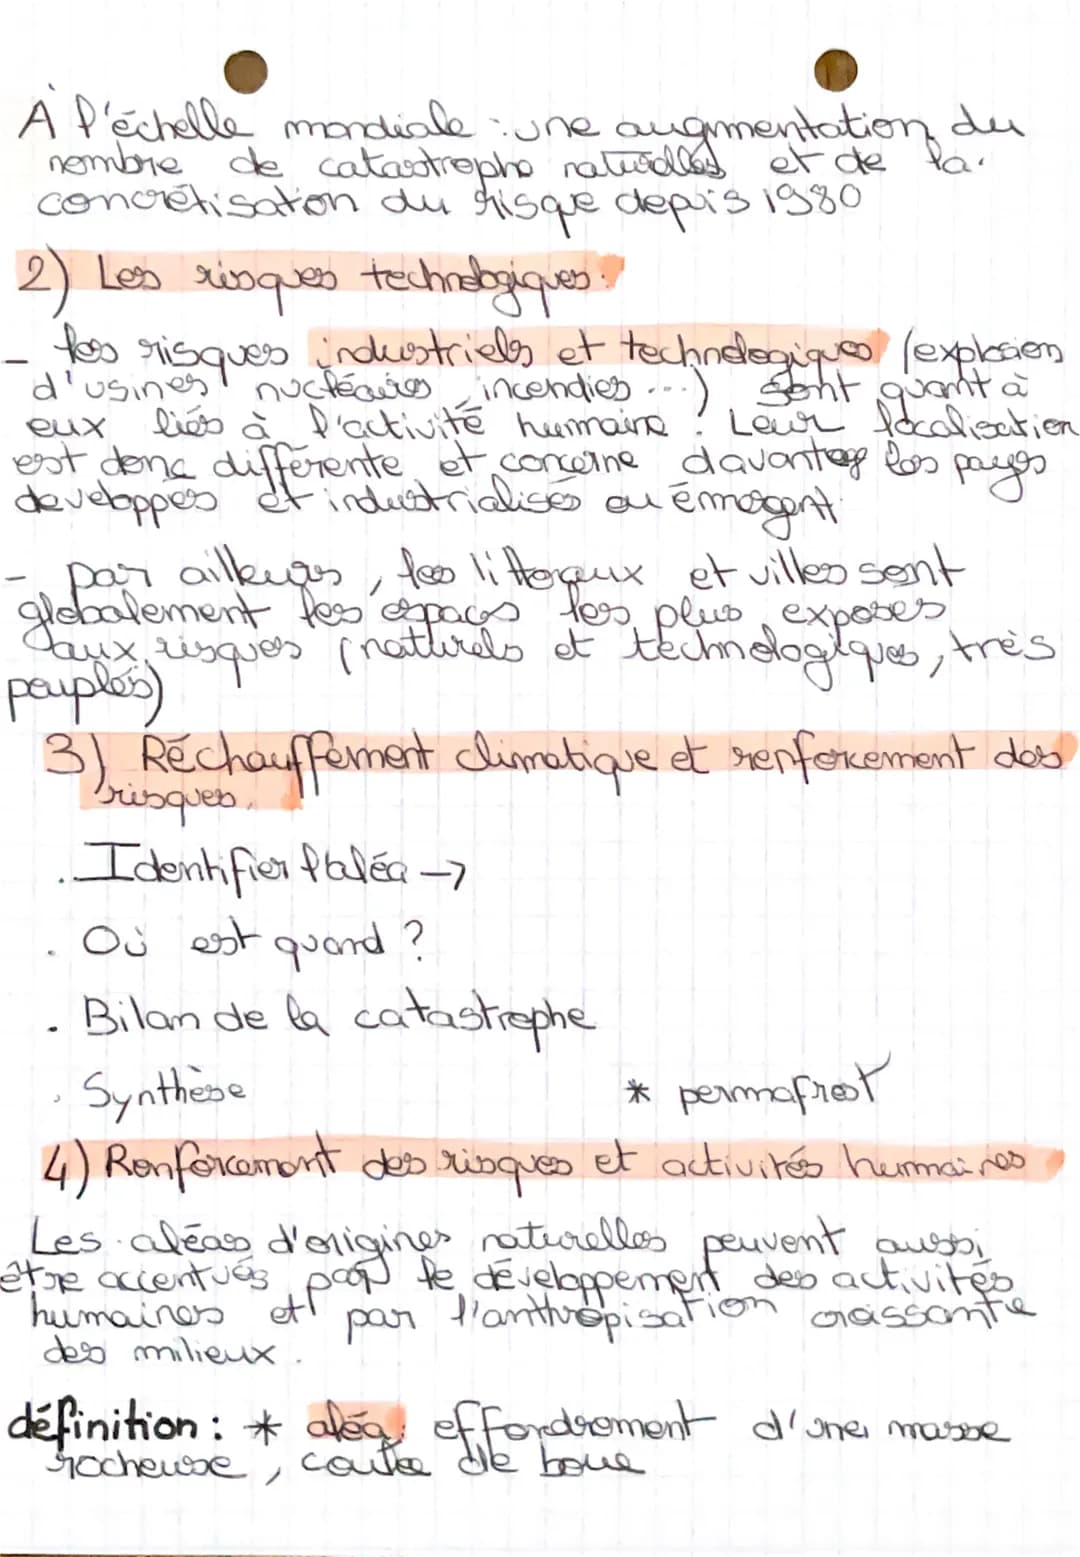 A l'échelle mondiale : une augmentation du
nombre de catastrophe naturelles et de la
concrétisaton du risque depuis 1980
2) Les risques technologiques :
- les risques industriels et technologiques (explosion
d'usines nucléaires, incendies ...) sont quant à
eux liés à l'activité humaine. Leur localisation
est donc différente et concerne davantage les pays
developpés et industrialisés ou émergent.
- par ailleurs, les littoraux et villes sont
globalement les espaces les plus exposés
aux risques (naturels et technologiques, très
peuplés)
3) Réchauffement climatique et renforcement des
risques.
. Identifier l'aléa →
. Où est quand ?
. Bilan de la catastrophe
. Synthèse
* permafrost
4) Renforcement des risques et activités humaines
Les aléas d'origines naturelles peuvent aussi
être accentués par le développement des activités
humaines et par l'anthropisation croissante
des milieux.
définition : * aléa : effondrement d'une masse
rocheuse, coulée de boue